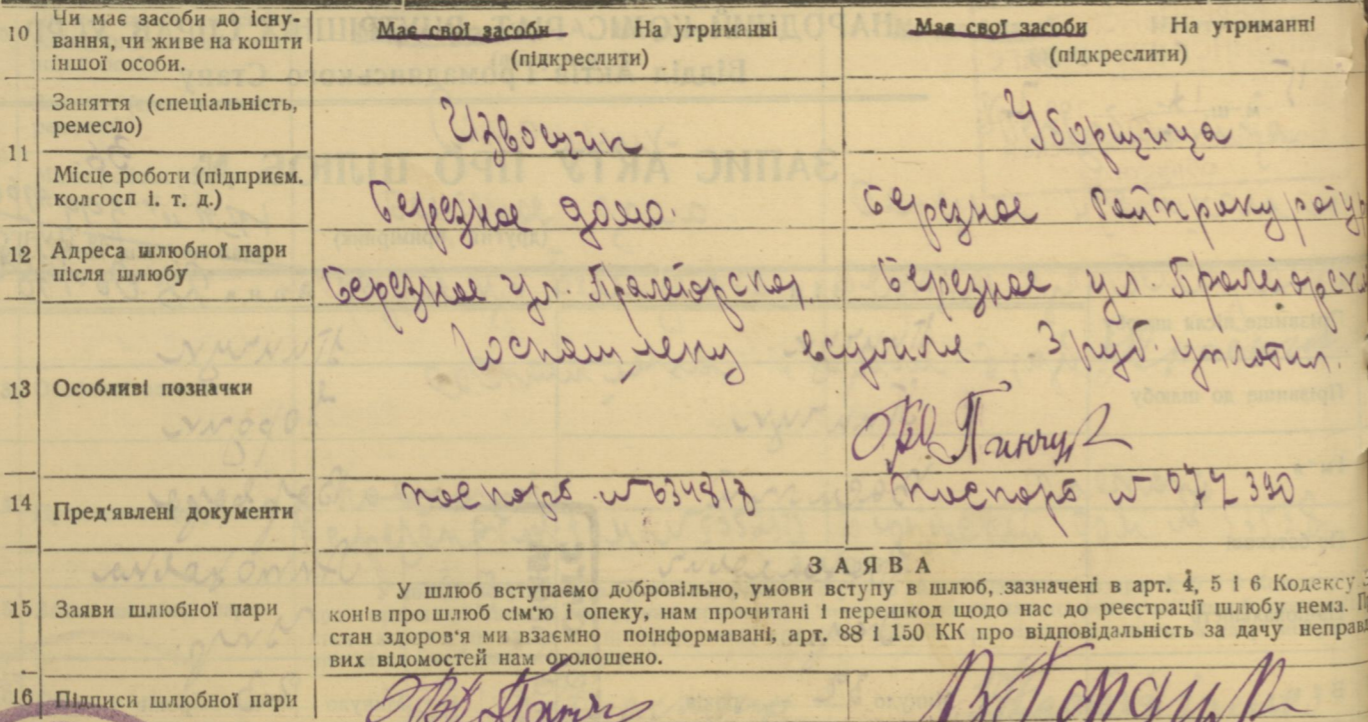 10 Чи має засоби до існування, чи живе на кошти іншої особи. Має свої засоби На утриманні (підкреслити) Має свої засоби На утриманні (підкреслити)
11 Заняття (спеціальність, ремесло) Извощик Уборщица
Місце роботи (підприєм. колгосп і. т. д.) Березное домо. Березное Райпрокуратур
12 Адреса шлюбної пари після шлюбу Березное ул. Пролетарская Березное ул. Пролетарска
13 Особливі позначки
Госпошлену в сумме 3 руб. уплотил.
Пинчук
14 Пред'явлені документи паспорт № 634818 паспорт № 077390
15 Заяви шлюбної пари
ЗАЯВА
У шлюб вступаємо добровільно, умови вступу в шлюб, зазначені в арт. 4, 5 і 6 Кодексу з
конів про шлюб сім'ю і опеку, нам прочитані і перешкод щодо нас до реєстрації шлюбу нема. П
стан здоров'я ми взаємно поінформавані, арт. 88 і 150 КК про відповідальність за дачу неправд
вих відомостей нам оголошено.
16 Підписи шлюбної пари